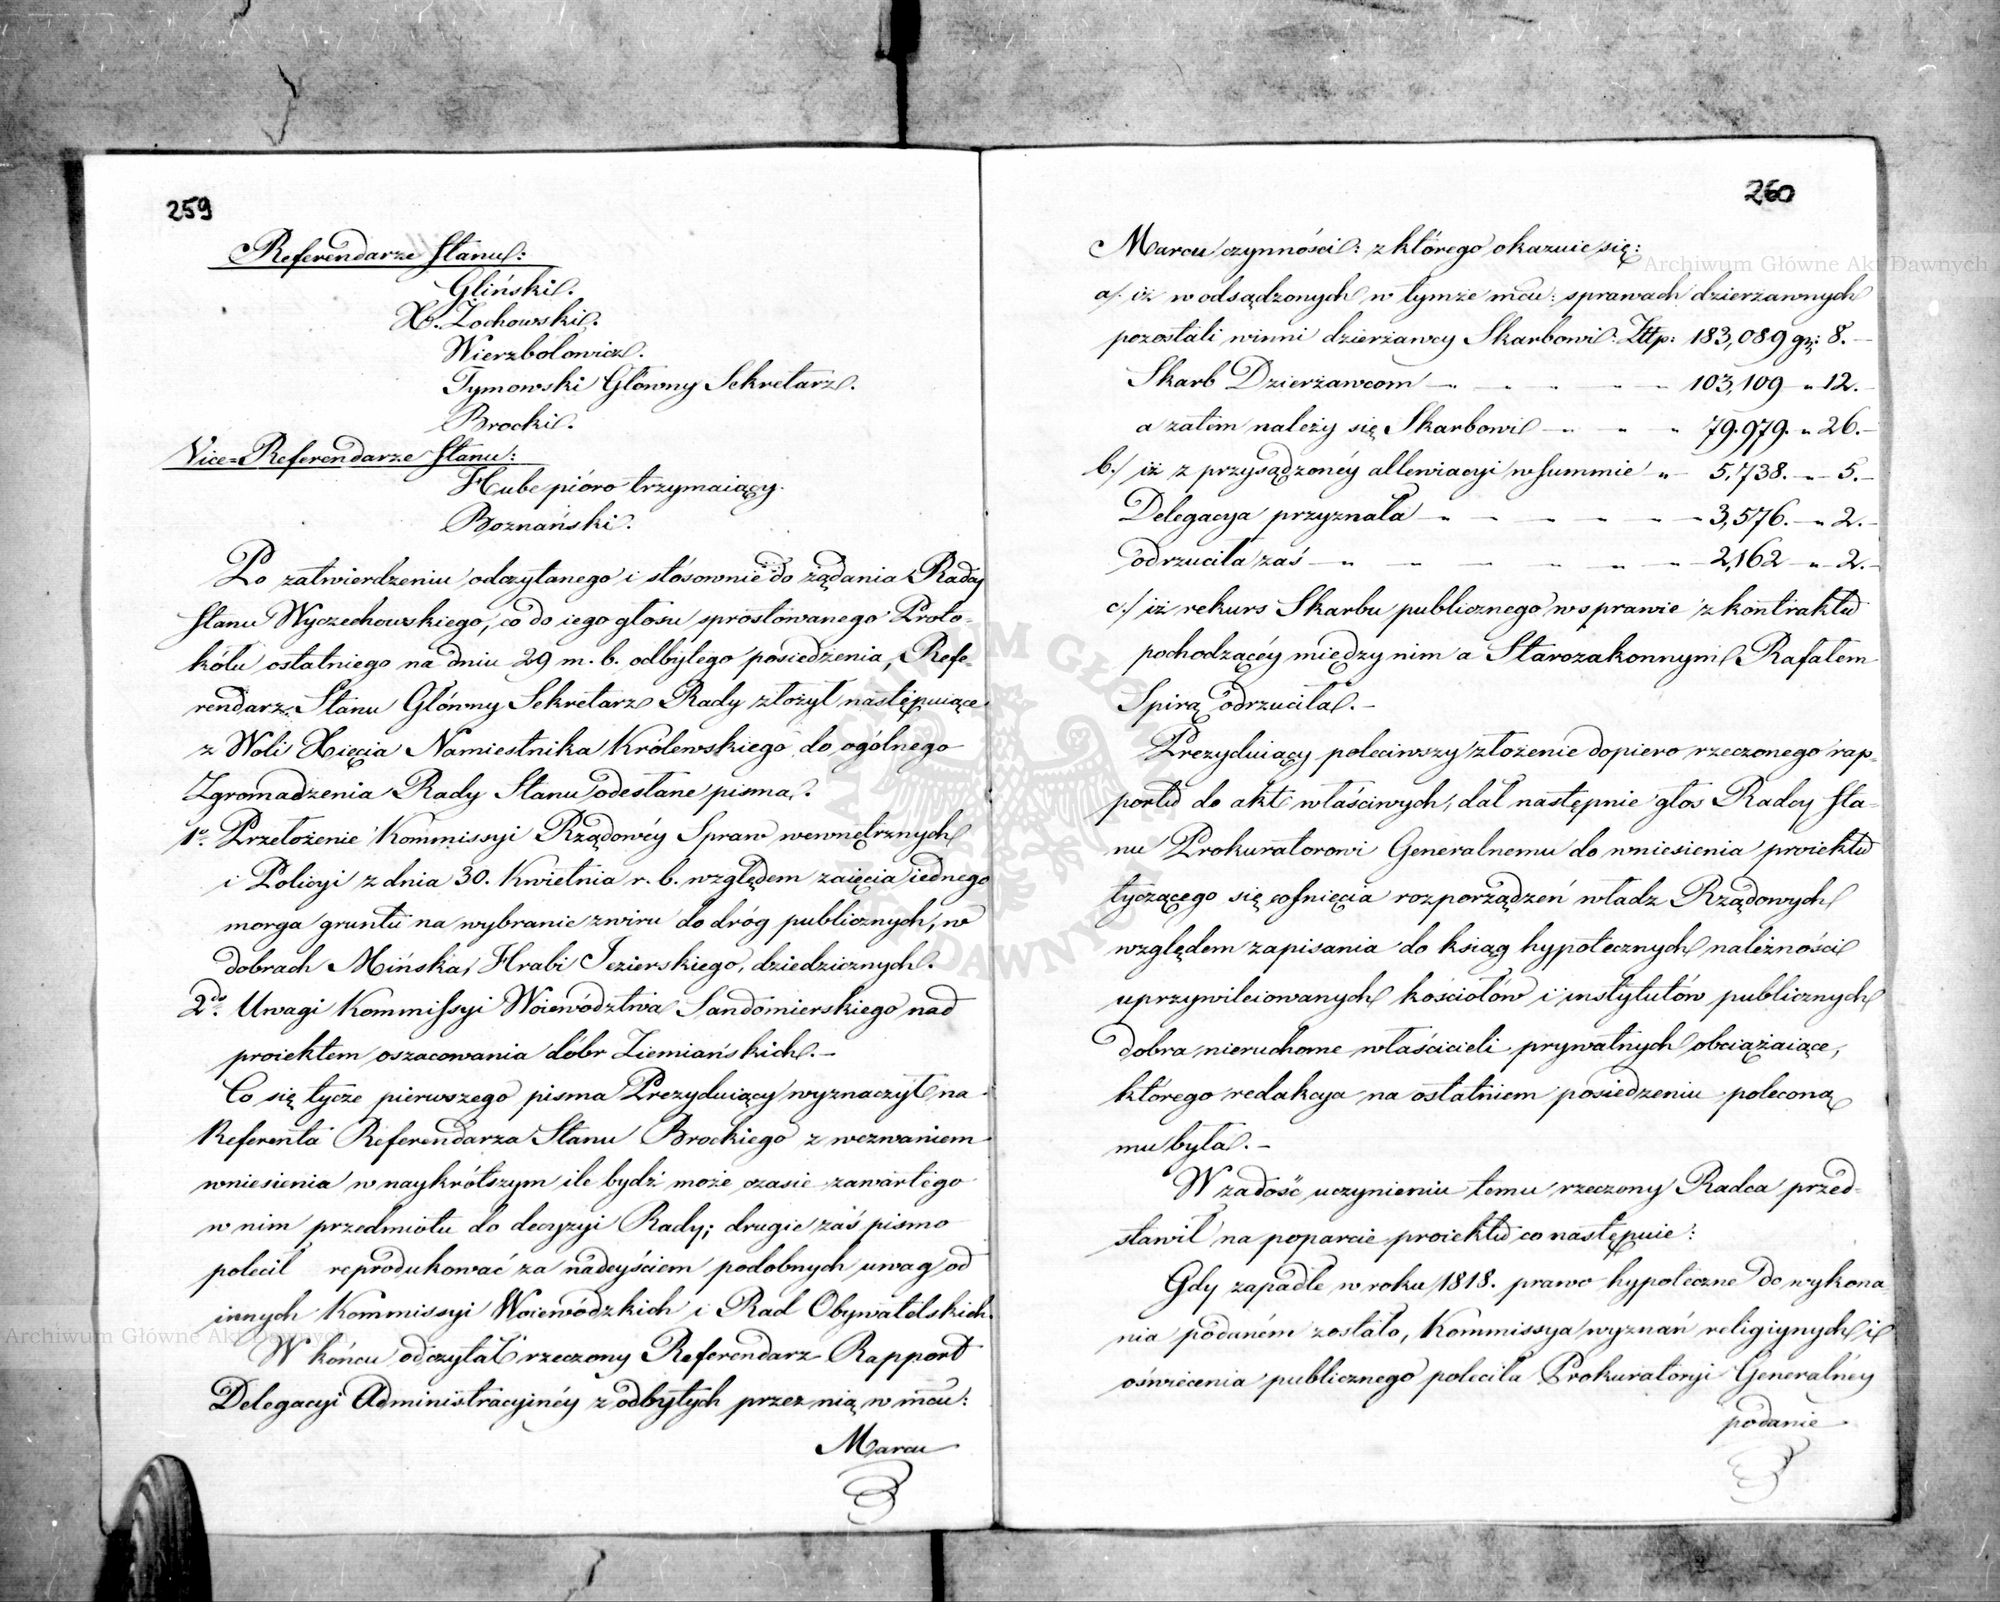 259
Referendarze Stanu:
Gliński.
X. Żochowski.
Wierzbołowicz.
Tymowski Główny Sekretarz.
Brocki.
Vice=Referendarze Stanu:
Hube pióro trzymaiący.
Boznański.
Po zatwierdzeniu odczytanego i stósownie do żądania Radcy
Stanu Wyczechowskiego, co do iego głosu sprostowanego Proto-
kółu ostatniego na dniu 29 m. b. odbytego posiedzenia, Refe-
rendarz Stanu Główny Sekretarz Rady złożył następuiące
z Woli Xięcia Namiestnika Królewskiego do ogólnego
Zgromadzenia Rady Stanu odesłane pisma.
1o. Przełożenie Kommissyi Rządowéy Spraw wewnętrznych
i Policyi z dnia 30. Kwietnia r. b. względem zaięcia iednego
morga gruntu na wybranie zwiru do dróg publicznych, w
dobrach Mińska, Hrabi Jezierskiego, dziedzicznych.
2do. Uwagi Kommissyi Woiewództwa Sandomierskiego nad
proiektem oszacowania dóbr Ziemiańskich.-
Co się tycze pierwszego pisma Prezyduiący wyznaczył na
Referenta Referendarza Stanu Brockiego z wezwaniem
wniesienia w naykrótszym ile bydź może czasie zawartego
w nim przedmiotu do decyzyi Rady; drugie zaś pismo
polecił reprodukować za nadeyściem podobnych uwag od
innych Kommissyi Woiewódzkich i Rad Obywatelskich.
W końcu odczytał rzeczony Referendarz Rapport
Delegacyi Administracyinéy z odbytych przez nią w mcu:
Marcu
260
Marcu czynności: z którego okazuie się:
a/. iż w odsądzonych w tymże mcu: sprawach dzierżawnych
pozostali winni dzierżawcy Skarbowi. Złtp: 183,089 gr: 8.-
Skarb Dzierżawcom - " - " - " - 103,109 " 12.-
a zatem należy się Skarbowi - " - " - " 79.979. " 26.-
b./ iż z przysądzonéy allewiacyi w summie " - 5,738. - " 5.-
Delegacya przyznała - " - " - " - 3,576. - " 2.-
odrzuciła zaś - " - " - " - 2,162 - " 2.-
c./ iż rekurs Skarbu publicznego w sprawie z kontraktu
pochodzącéy między nim a Starozakonnym Rafałem
Spirą odrzuciła.-
Prezyduiący poleciwszy złożenie dopiero rzeczonego rap-
portu do akt właściwych, dał następnie głos Radcy Sta-
nu Prokuratorowi Generalnemu do wniesienia proiektu
tyczącego się cofnięcia rozporządzeń władz Rządowych
względem zapisania do ksiąg hypotecznych należności
uprzywileiowanych kościołów i instytutów publicznych
dobra nieruchome właścicieli prywatnych obciążaiące,
którego redakcya na ostatniem posiedzeniu poleconą
mu była.-
W zadość uczynieniu temu rzeczony Radca przed-
stawił na poparcie proiektu co następuie:
Gdy zapadłe w roku 1818. prawo hypoteczne do wykona
nia podaném zostało, Kommissya wyznań religiynych i
oświecenia publicznego poleciła Prokuratoryi Generalnéy
podanie
Archiwum Główne Akt Dawnych
Archiwum Główne Akt Dawnych
ARCHIWUM GŁÓWNE AKT DAWNYCH